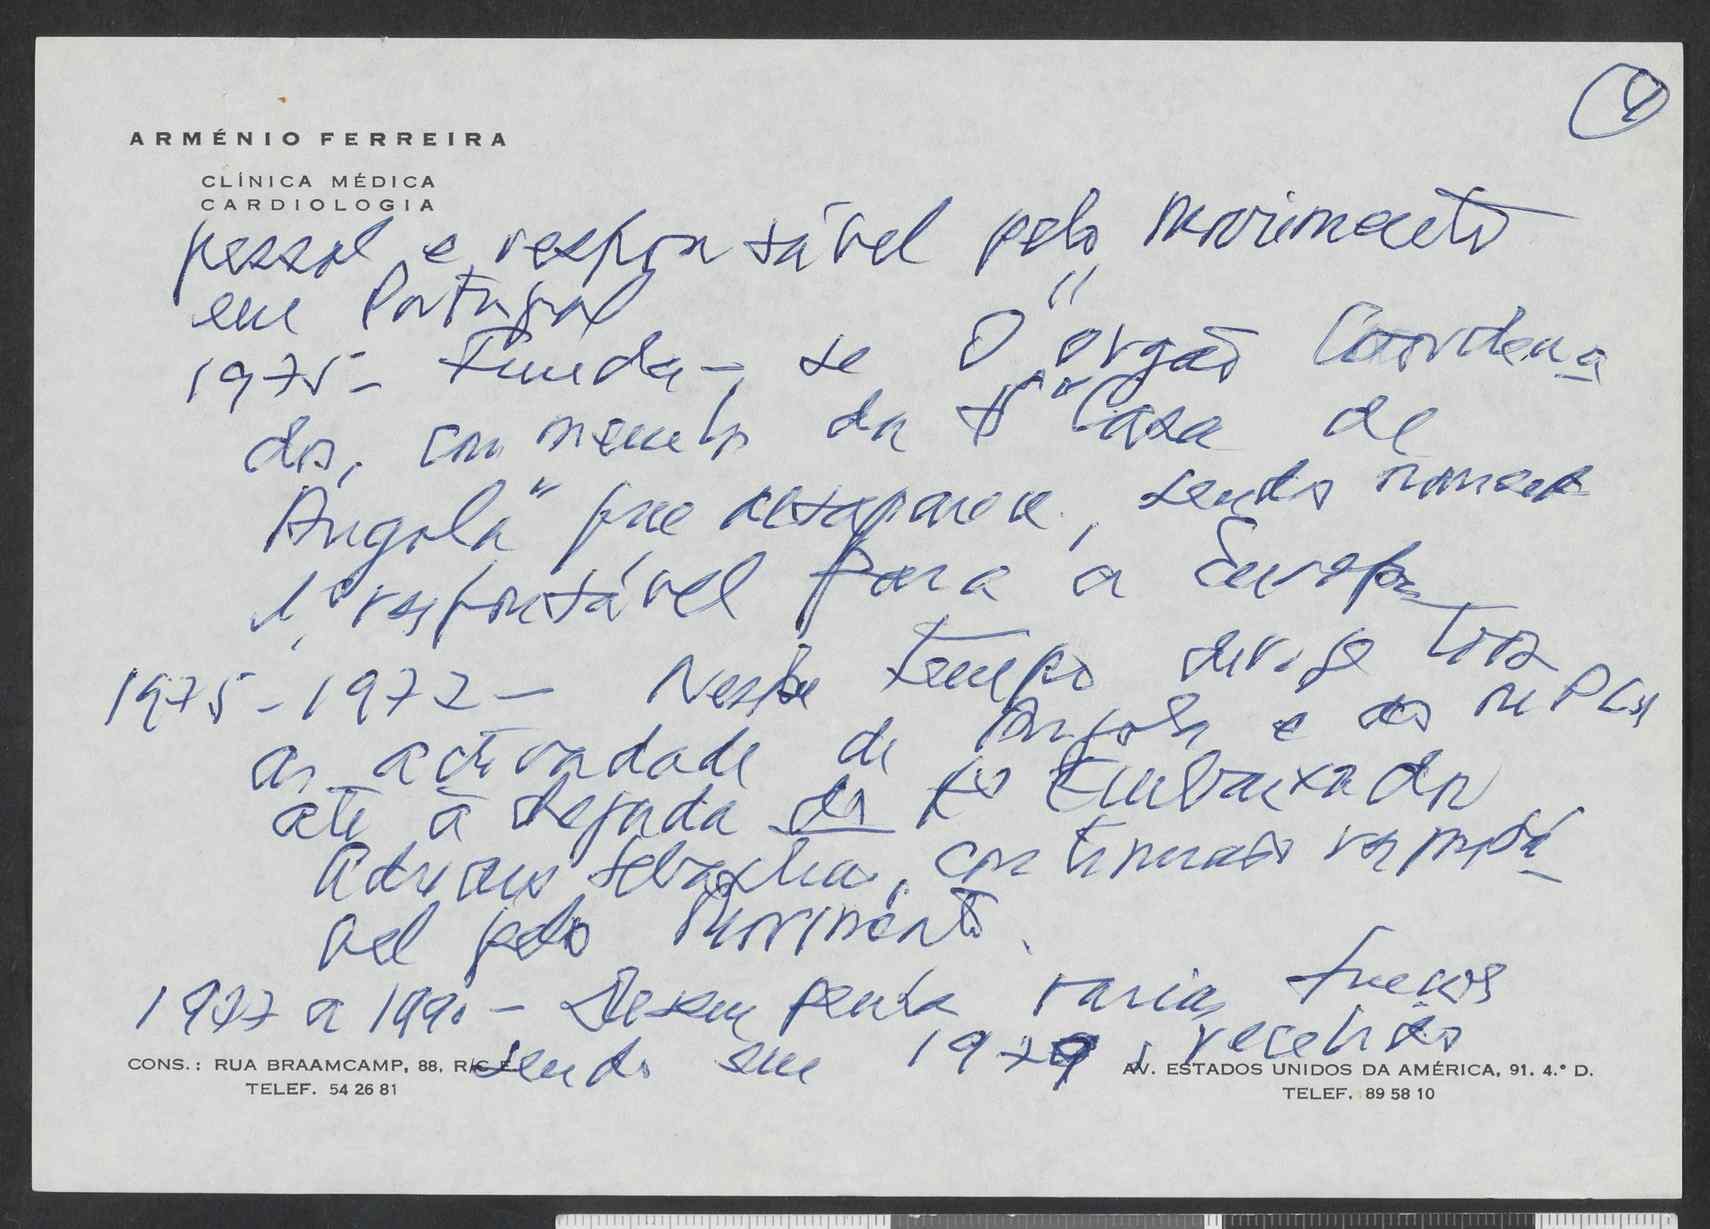 4
ARMÉNIO FERREIRA
CLÍNICA MÉDICA
CARDIOLOGIA
pessoal e responsável pelo movimento
em Portugal
1975 - Funda-se O "orgão Coordena
dor, com membros da "Casa de
Angola" que desaparece, sendo
1º responsável para a Europa
1975-1977 - Neste tempo dirige
as actividade de Angola e do MPLA
até à chegada do 1º Embaixador
Adriano Sebastião, continuando responsá-
vel pelo Movimento.
1977 a 1990 - Desempenha varias funções
sendo em 1979, recebido
CONS.: RUA BRAAMCAMP, 88, R/C E.
TELEF. 54 26 81
AV. ESTADOS UNIDOS DA AMÉRICA, 91. 4.º D.
TELEF. 89 58 10